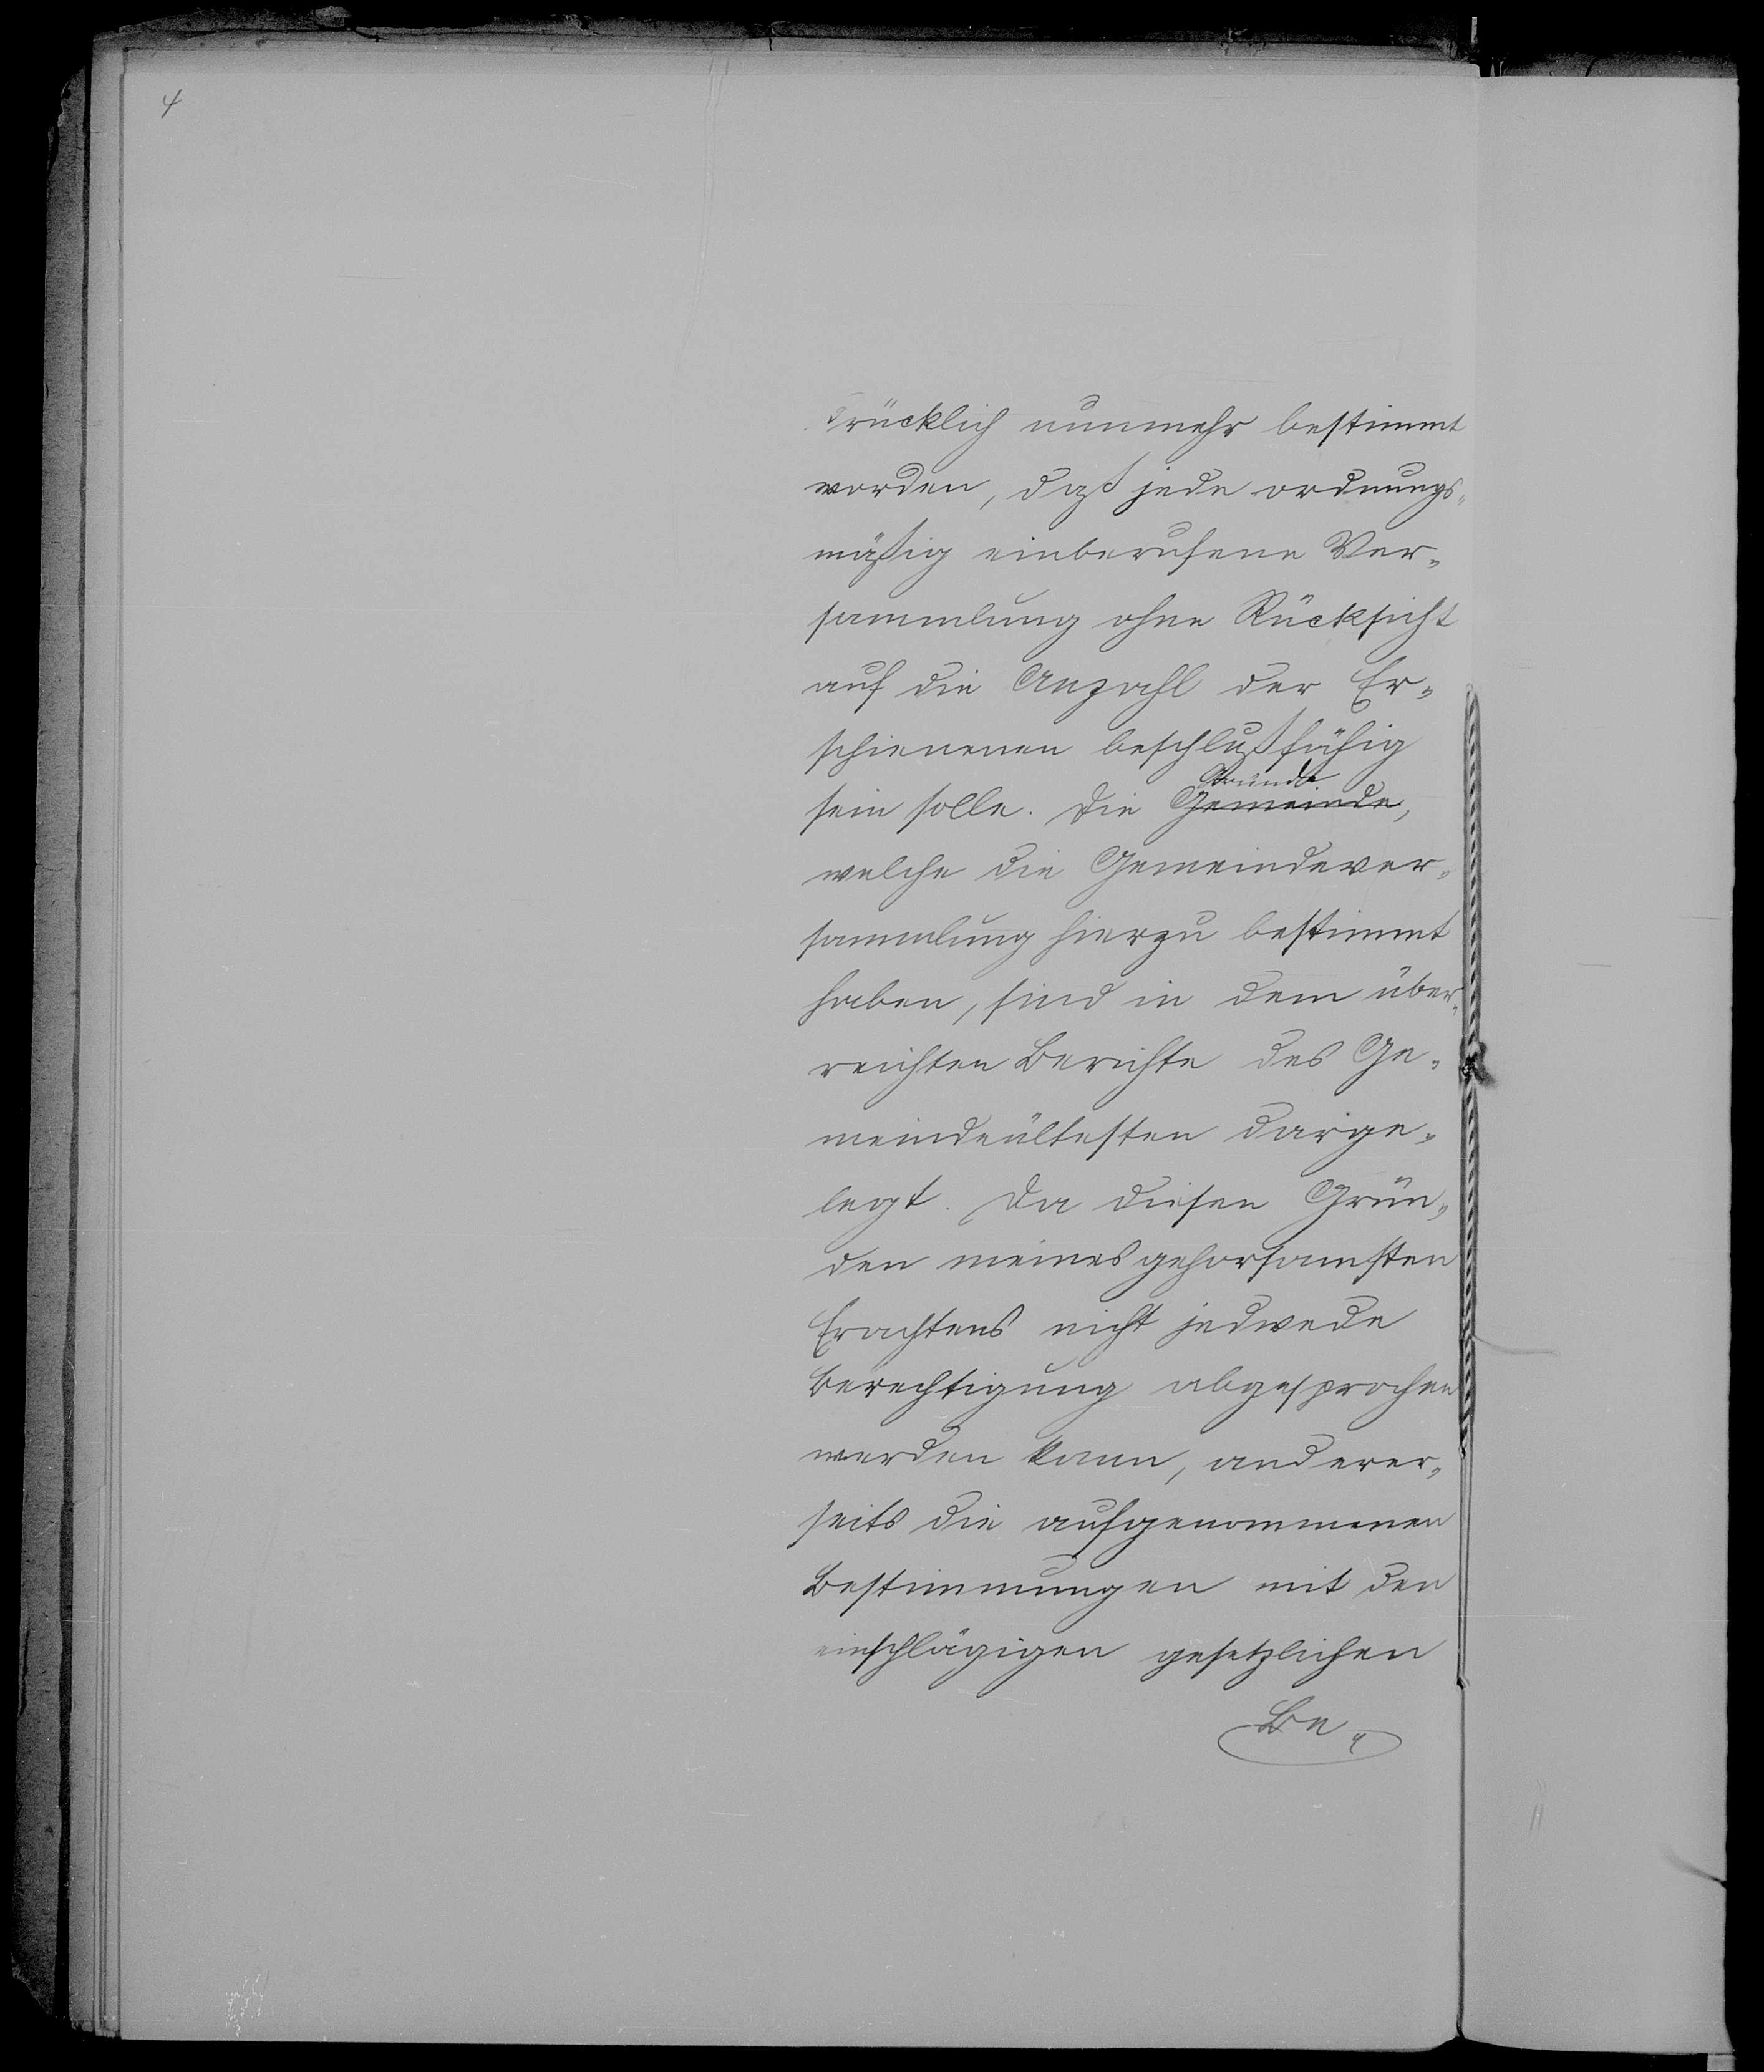 4
drücklich nunmehr bestimmt
worden, daß jede ordnungs-
mäßig einberufene Ver-
sammlung ohne Rücksicht
auf die Anzahl der Er-
schienenen beschlußfähig
Gründe
sein solle. Die Gemeinde,
welche die Gemeindever-
sammlung hierzu bestimmt
haben, sind in dem über-
reichten Berichte des Ge-
meindeältesten darge-
legt. Da diesen Grün-
den meines gehorsamsten
Erachtens nicht jedwede
Berechtigung abgesprochen
werden kann, anderer-
seits die aufgenommenen
Bestimmungen mit den
einschlägigen gesetzlichen
Be-